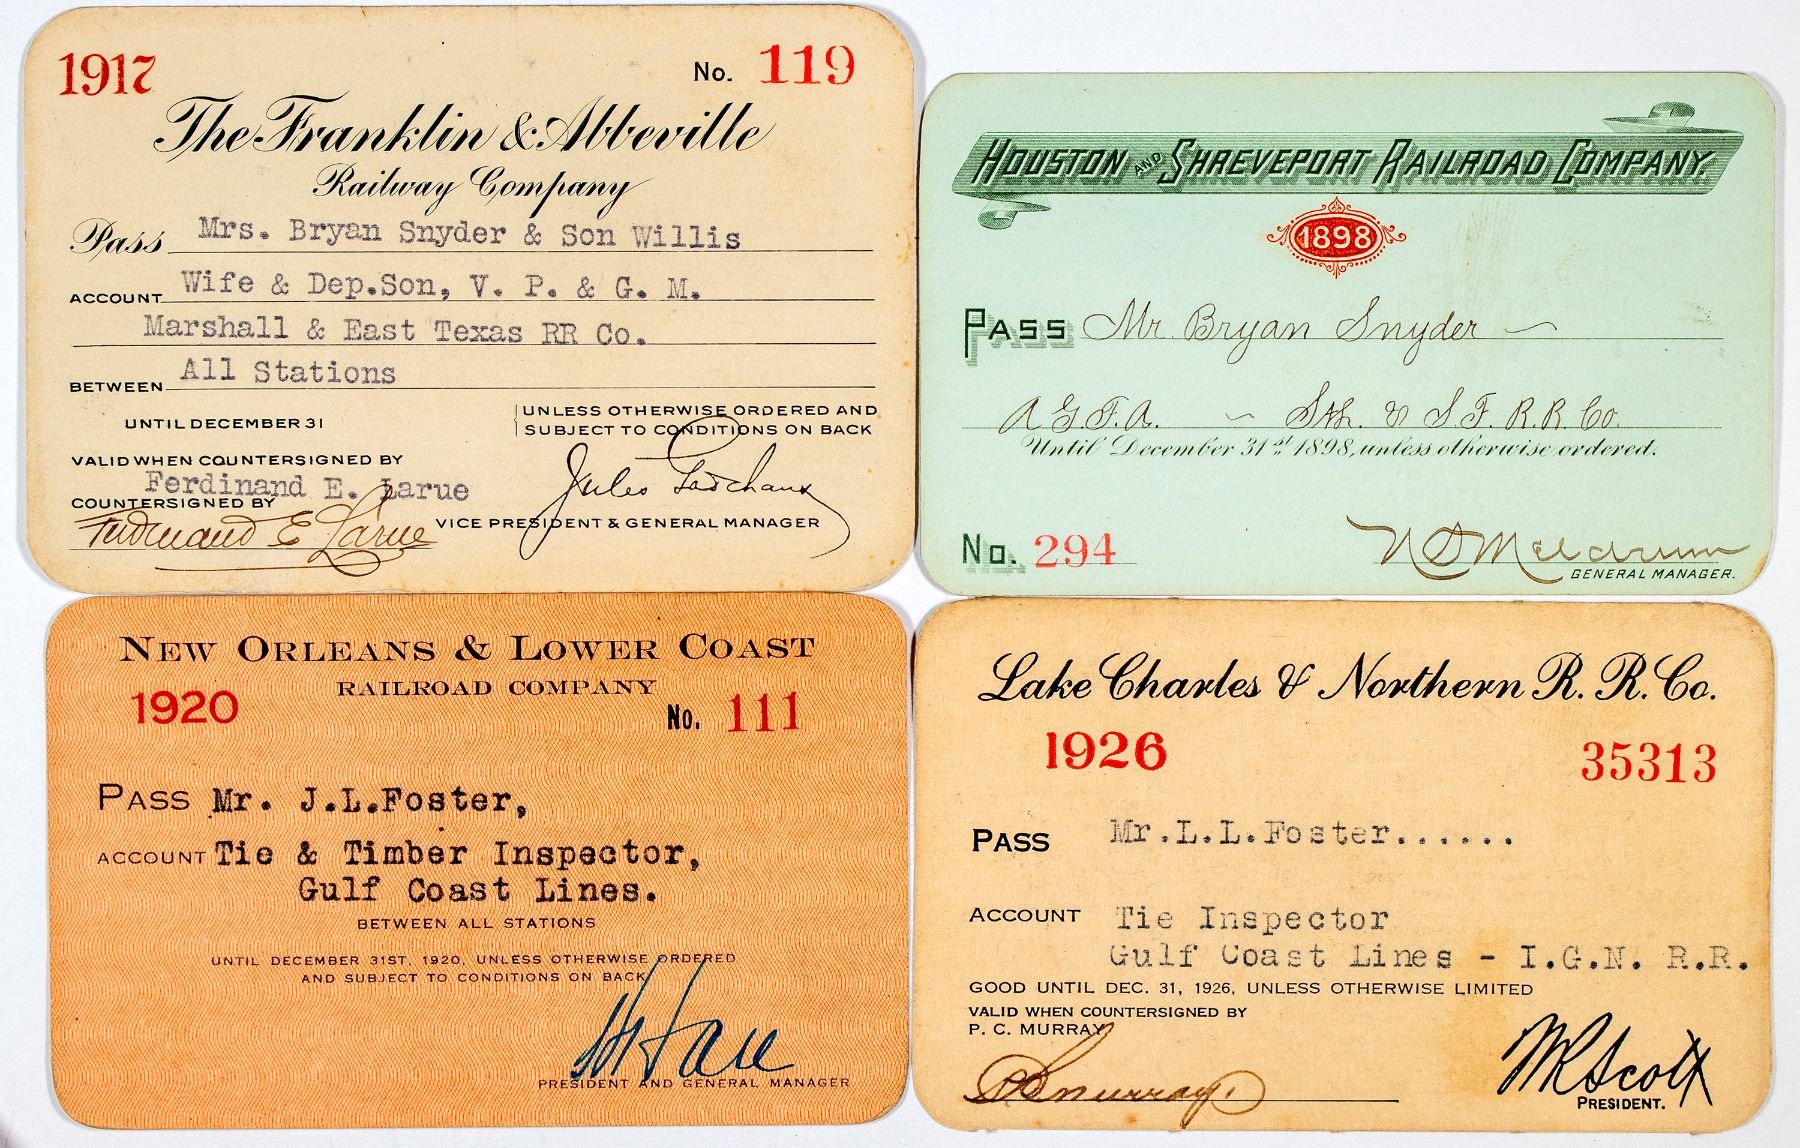 1917
No. 119
The Franklin & Abbeville
Railway Company
Pass Mrs. Bryan Snyder & Son Willis
ACCOUNT Wife & Dep.Son, V. P. & G. M.
Marshall & East Texas RR Co.
BETWEEN All Stations
UNTIL DECEMBER 31
UNLESS OTHERWISE ORDERED AND
SUBJECT TO CONDITIONS ON BACK
VALID WHEN COUNTERSIGNED BY
Ferdinand E. Larue
COUNTERSIGNED BY
Ferdinand E Larue
Jules Godchaux
VICE PRESIDENT & GENERAL MANAGER
HOUSTON AND SHREVEPORT RAILROAD COMPANY.
1898
PASS Mr. Bryan Snyder
A G. F. A. ~ Sth. & S F. R. R Co.
Until December 31st 1898, unless otherwise ordered.
No. 294
GENERAL MANAGER.
NEW ORLEANS & LOWER COAST
RAILROAD COMPANY
1920
No. 111
PASS Mr. J.L.Foster,
ACCOUNT Tie & Timber Inspector,
Gulf Coast Lines.
BETWEEN ALL STATIONS
UNTIL DECEMBER 31ST, 1920, UNLESS OTHERWISE ORDERED
AND SUBJECT TO CONDITIONS ON BACK
PRESIDENT AND GENERAL MANAGER
Lake Charles & Northern R. R. Co.
1926
35313
PASS Mr.L.L.Foster......
ACCOUNT Tie Inspector
Gulf Coast Lines - I.G.N. R.R.
GOOD UNTIL DEC. 31, 1926, UNLESS OTHERWISE LIMITED
VALID WHEN COUNTERSIGNED BY
P. C. MURRAY
P C Murray.
W R Scott
PRESIDENT.